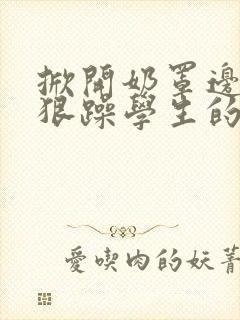 掀開奶罩邊
狠躁學生的
愛喫肉的妖菁